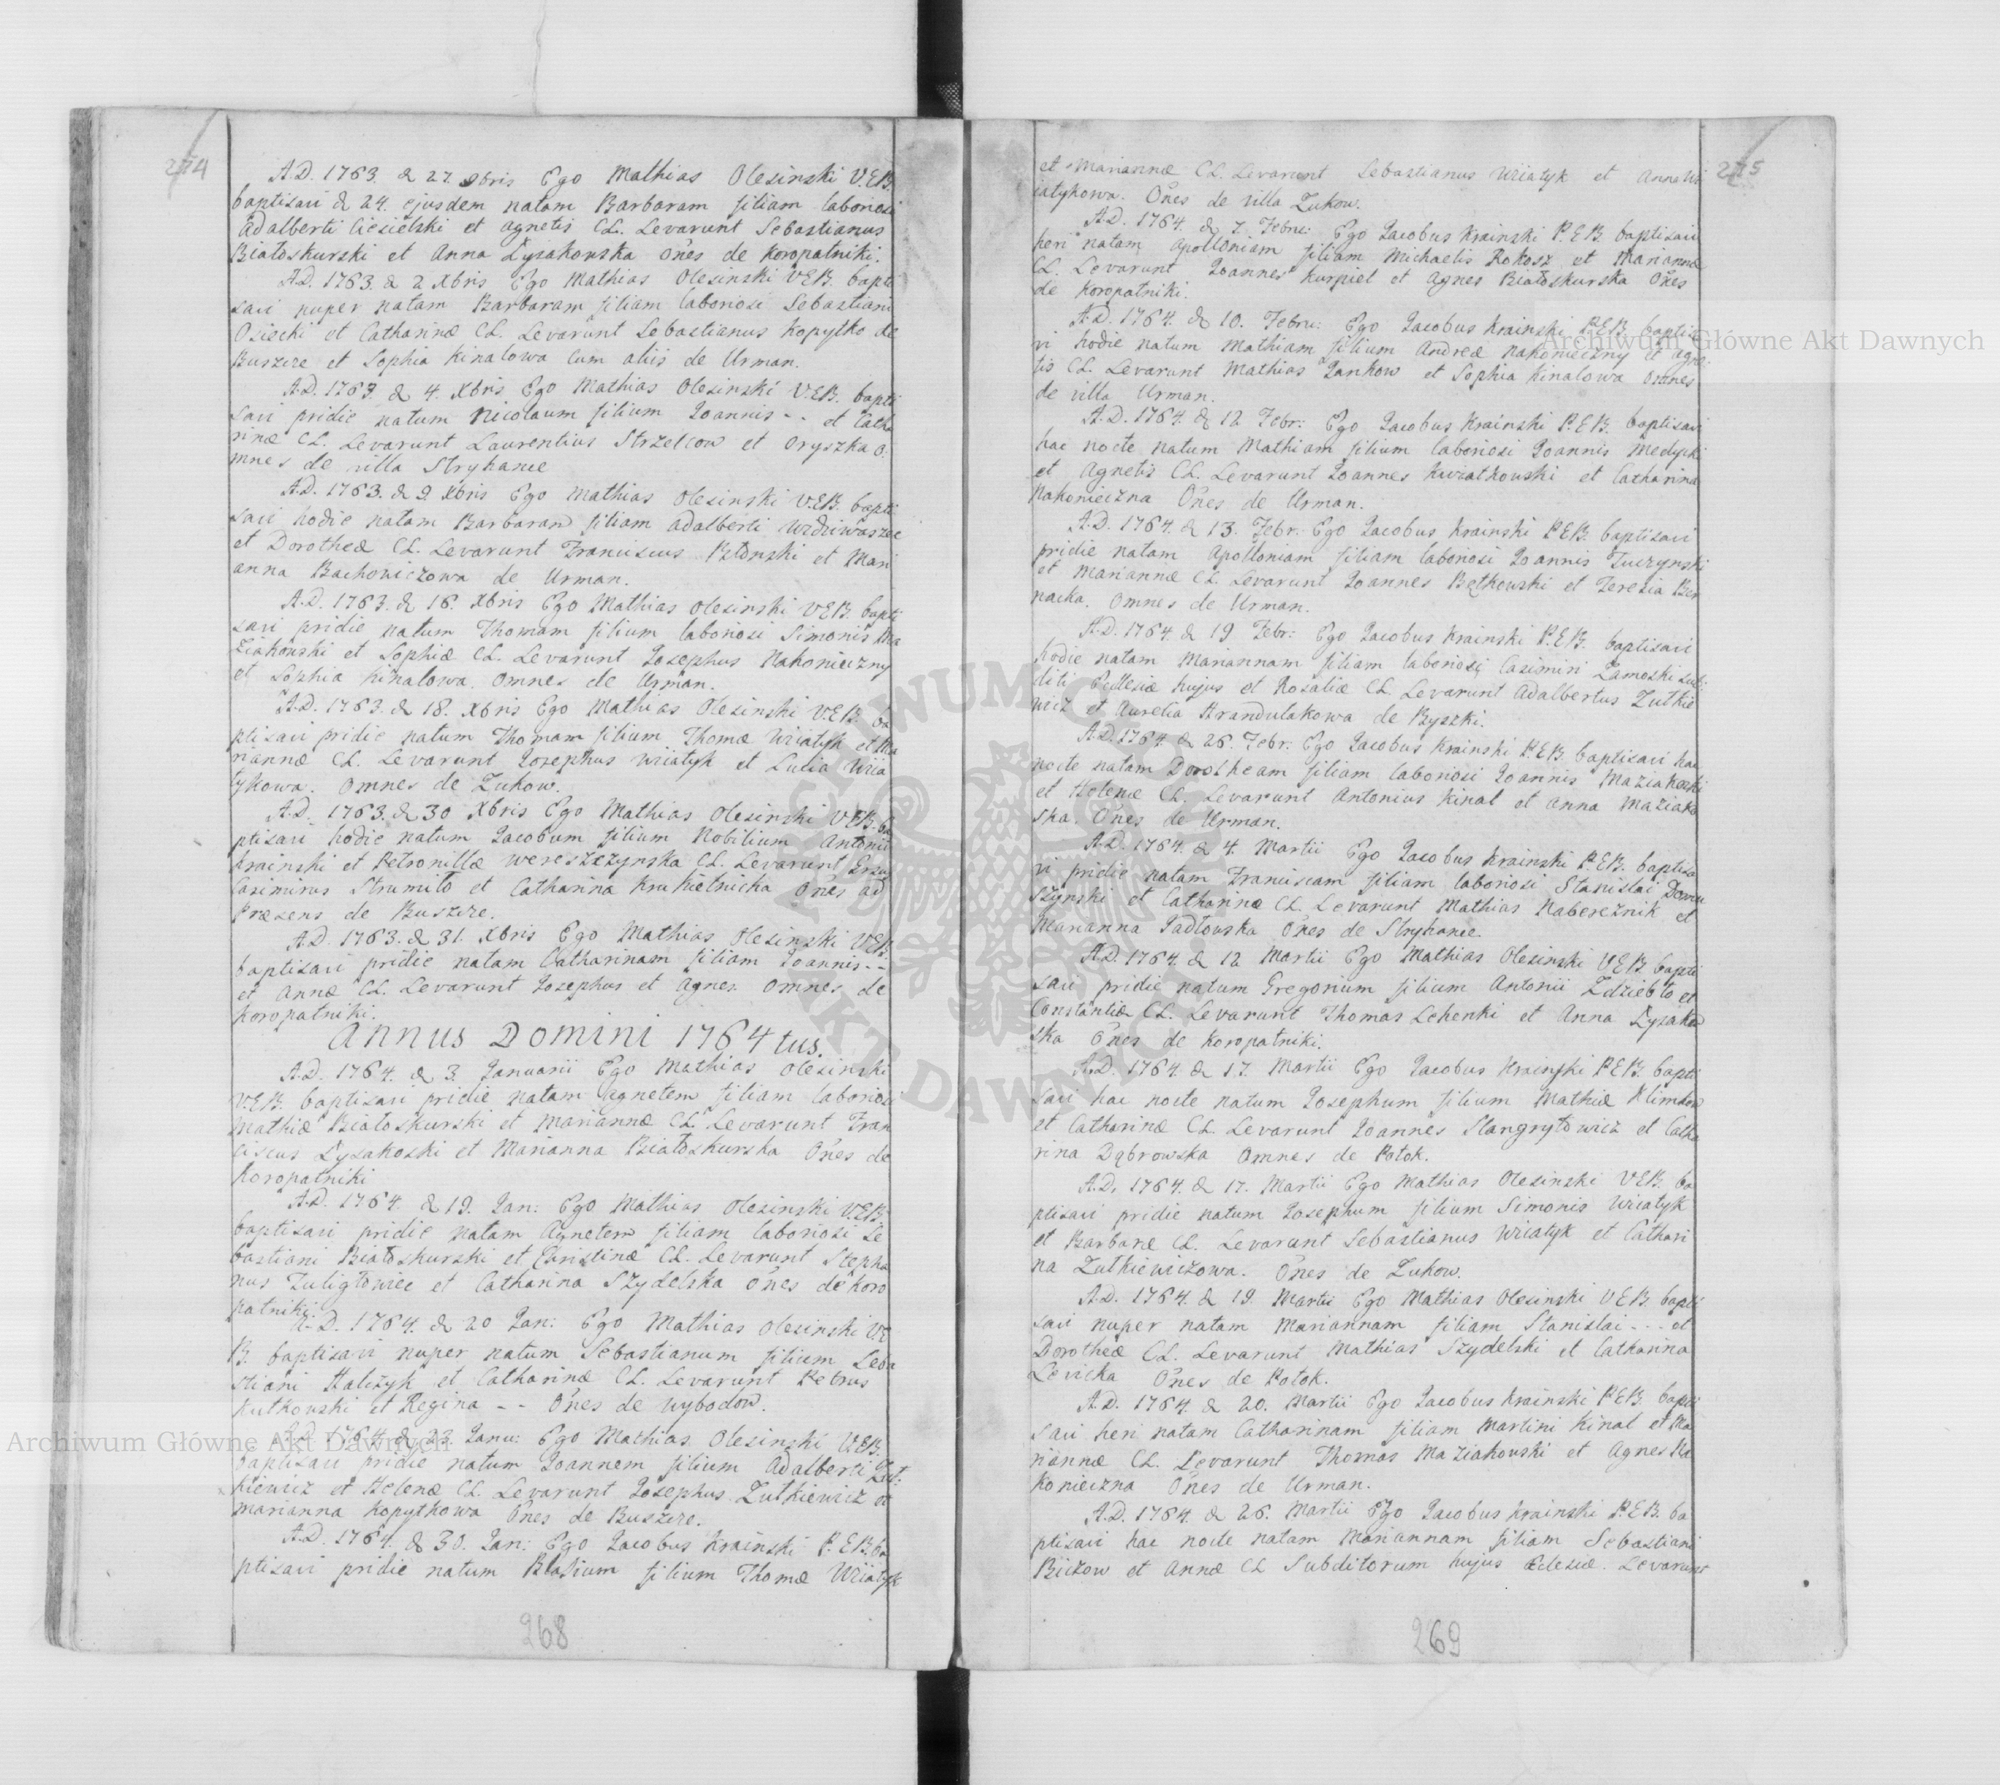 274
A.D. 1763. d 27. 9bris Ego Mathias Olesinski V.E.B.
baptisavi d 24. ejusdem natam Barbaram filiam laboriosi
Adalberti Ciesielski et Agnetis CL. Levarunt Sebastianus
Białoskurski et Anna Łysakowska Oñes de Koropatniki.
A.D. 1763. d 2 Xbris Ego Mathias Olesinski V.E.B. bapti
savi nuper natam Barbaram filiam laboriosi Sebastiani
et Catharinæ CL. Levarunt Sebastianus Kopytko de
Buszcze et Sophia Kinalowa cum aliis de Urman.
A.D. 1763. d 4. Xbris Ego Mathias Olesinski V.E.B. bapti
savi pridie natum Nicolaum filium Joannis - - et Catha
rinæ CL. Levarunt Laurentius Strzelcow et Oryszka o.
mnes de villa Stryhance
A.D. 1763. d 9. Xbris Ego Mathias Olesinski V.E.B. bapti
savi hodie natam Barbaram filiam Adalberti
et Dorotheæ CL. Levarunt Franciscus Błonski et Mari
anna Bachowiczowa de Urman.
A.D. 1763. d 16. Xbris Ego Mathias Olesinski V.E.B. bapti
savi pridie natum Thomam filium laboriosi Simonis Ma
ziakowski et Sophiæ CL. Levarunt Josephus Nakonieczny
et Sophia Kinalowa. Omnes de Urman.
A.D. 1763. d 18. Xbris Ego Mathias Olesinski V.E.B. ba
ptisavi pridie natum Thomam filium Thomæ Wriatyk et Ma
riannæ CL. Levarunt Josephus Wriatyk et Lucia Wria
tykowa. Omnes de Zukow.
A.D. 1763. d 30 Xbris Ego Mathias Olesinski V.E.B. ba
ptisavi hodie natum Jacobum filium Nobilium Antonii
Krainski et Petronillæ Wereszczynska CL. Levarunt
Casimirus Strumiło et Catharina Krukietnicka Oñes ad
Præsens de Buszcze.
A.D. 1763. d 31. Xbris Ego Mathias Olesinski V.E.B.
baptisavi pridie natam Catharinam filiam Joannis - -
et Annæ CL. Levarunt Josephus et Agnes. Omnes de
Koropatniki.
Annus Domini 1764 tus.
A.D. 1764. d 3. Januarii Ego Mathias Olesinski
V.E.B. baptisavi pridie natam Agnetem filiam laboriosi
Mathiæ Białoskurski et Mariannæ CL. Levarunt Fran
ciscus Łysakoski et Marianna Białoskurska Oñes de
Koropatniki
A.D. 1764. d 19. Jan: Ego Mathias Olesinski V.E.B.
baptisavi pridie natam Agnetem filiam laboriosi Se
bastiani Białoskurski et Christinæ CL. Levarunt Stepha
nus Zuligłowiec et Catharina Szydelska Oñes de Koro
patniki.
A.D. 1764. d 20 Jan: Ego Mathias Olesinski V.E.
B. baptisavi nuper natum Sebastianum filium Seba
stiani Halczyk et Catharinæ CL. Levarunt Petrus
Kutkowski et Regina - - Oñes de Wybodow.
A.D. 1764. d 23 Janu: Ego Mathias Olesinski V.E.B.
baptisavi pridie natum Joannem filium Adalberti Zut:
kiewicz et Helenæ CL. Levarunt Josephus Zutkiewicz et
Marianna Kopytkowa Oñes de Buszcze.
A.D. 1764. d 30. Jan: Ego Jacobus Krainski P.E.B. ba
ptisavi pridie natum Blasium filium Thomæ Wriatyk
268
275
et Mariannæ CL. Levarunt Sebastianus Wriatyk et Anna Wr
iatykowa. Oñes de villa Zukow.
A.D. 1764. d 7. Febru: Ego Jacobus Krainski P.E.B. baptisavi
heri natam Apolloniam filiam Michaelis Rokosz et Mariannæ
CL. Levarunt Joannes Kurpiel et Agnes Białoskurska Oñes
de Koropatniki.
A.D. 1764. d 10. Febru: Ego Jacobus Krainski P.E.B. baptisa
vi hodie natum Mathiam filium Andreæ Nakonieczny et Agne
tis CL. Levarunt Mathias Jankow et Sophia Kinalowa Omnes
de villa Urman.
A.D. 1764. d 12 Febr: Ego Jacobus Krainski P.E.B. baptisavi
hac nocte natum Mathiam filium laboriosi Joannis Medycki
et Agnetis CL. Levarunt Joannes Kwiatkowski et Catharina
Nakonieczna Oñes de Urman.
A.D. 1764. d 13. Febr: Ego Jacobus Krainski P.E.B. baptisavi
pridie natam Apolloniam filiam laboriosi Joannis Tuczynski
et Mariannæ CL. Levarunt Joannes Bętkowski et Teresia Ber
nacka. Omnes de Urman.
A.D. 1764. d 19 Febr: Ego Jacobus Krainski P.E.B. baptisavi
hodie natam Mariannam filiam laboriosi Casimiri Zamoski sub
diti Ecclesiæ hujus et Rosaliæ CL Levarunt Adalbertus Zutkie
wicz et Aurelia Handulakowa de Byszki.
A.D. 1764. d 26. Febr: Ego Jacobus Krainski P.E.B. baptisavi hac
nocte natam Dorotheam filiam laboriosi Joannis Maziakoski
et Helenæ CL. Levarunt Antonius Kinal et Anna Maziako
ska. Oñes de Urman.
A.D. 1764. d 4. Martii Ego Jacobus Krainski P.E.B. baptisa
vi pridie natam Franciscam filiam laboriosi Stanislai
et Catharinæ CL. Levarunt Mathias Nabereżnik et
Marianna Jadłowska Oñes de Stryhance.
A.D. 1764. d 12 Martii Ego Mathias Olesinski V.E.B. bapti
savi pridie natum Gregorium filium Antonii Zdziebło et
Constantiæ CL. Levarunt Thomas Lehenki et Anna Łysakow
ska Oñes de Koropatniki.
A.D. 1764. d 17. Martii Ego Jacobus Krainski P.E.B. bapti
savi hac nocte natum Josephum filium Mathiæ Klimkow
et Catharinæ CL. Levarunt Joannes Stangrytowicz et Catha
rina Dąbrowska Omnes de Potok.
A.D. 1764. d 17. Martii Ego Mathias Olesinski V.E.B. ba
ptisavi pridie natum Josephum filium Simonis Wriatyk
et Barbaræ CL. Levarunt Sebastianus Wriatyk et Cathari
na Zutkiewiczowa. Oñes de Zukow.
A.D. 1764. d 19. Martii Ego Mathias Olesinski V.E.B. bapti
savi nuper natam Mariannam filiam Stanislai - - - et
Dorotheæ CL. Levarunt Mathias Szydelski et Catharina
Levicka Oñes de Potok.
A.D. 1764. d 20. Martii Ego Jacobus Krainski P.E.B. bapti
savi heri natam Catharinam filiam Martini Kinal et Ma
riannæ CL. Levarunt Thomas Maziakowski et Agnes Na
konieczna Oñes de Urman.
A.D. 1764. d 26. Martii Ego Jacobus Krainski P.E.B. ba
ptisavi hac nocte natam Mariannam filiam Sebastiani
et Annæ CL Subditorum hujus Eclesiæ. Levarunt
269
Archiwum Główne Akt Dawnych
Archiwum Główne Akt Dawnych
ARCHIWUM GŁÓWNE
AKT DAWNYCH